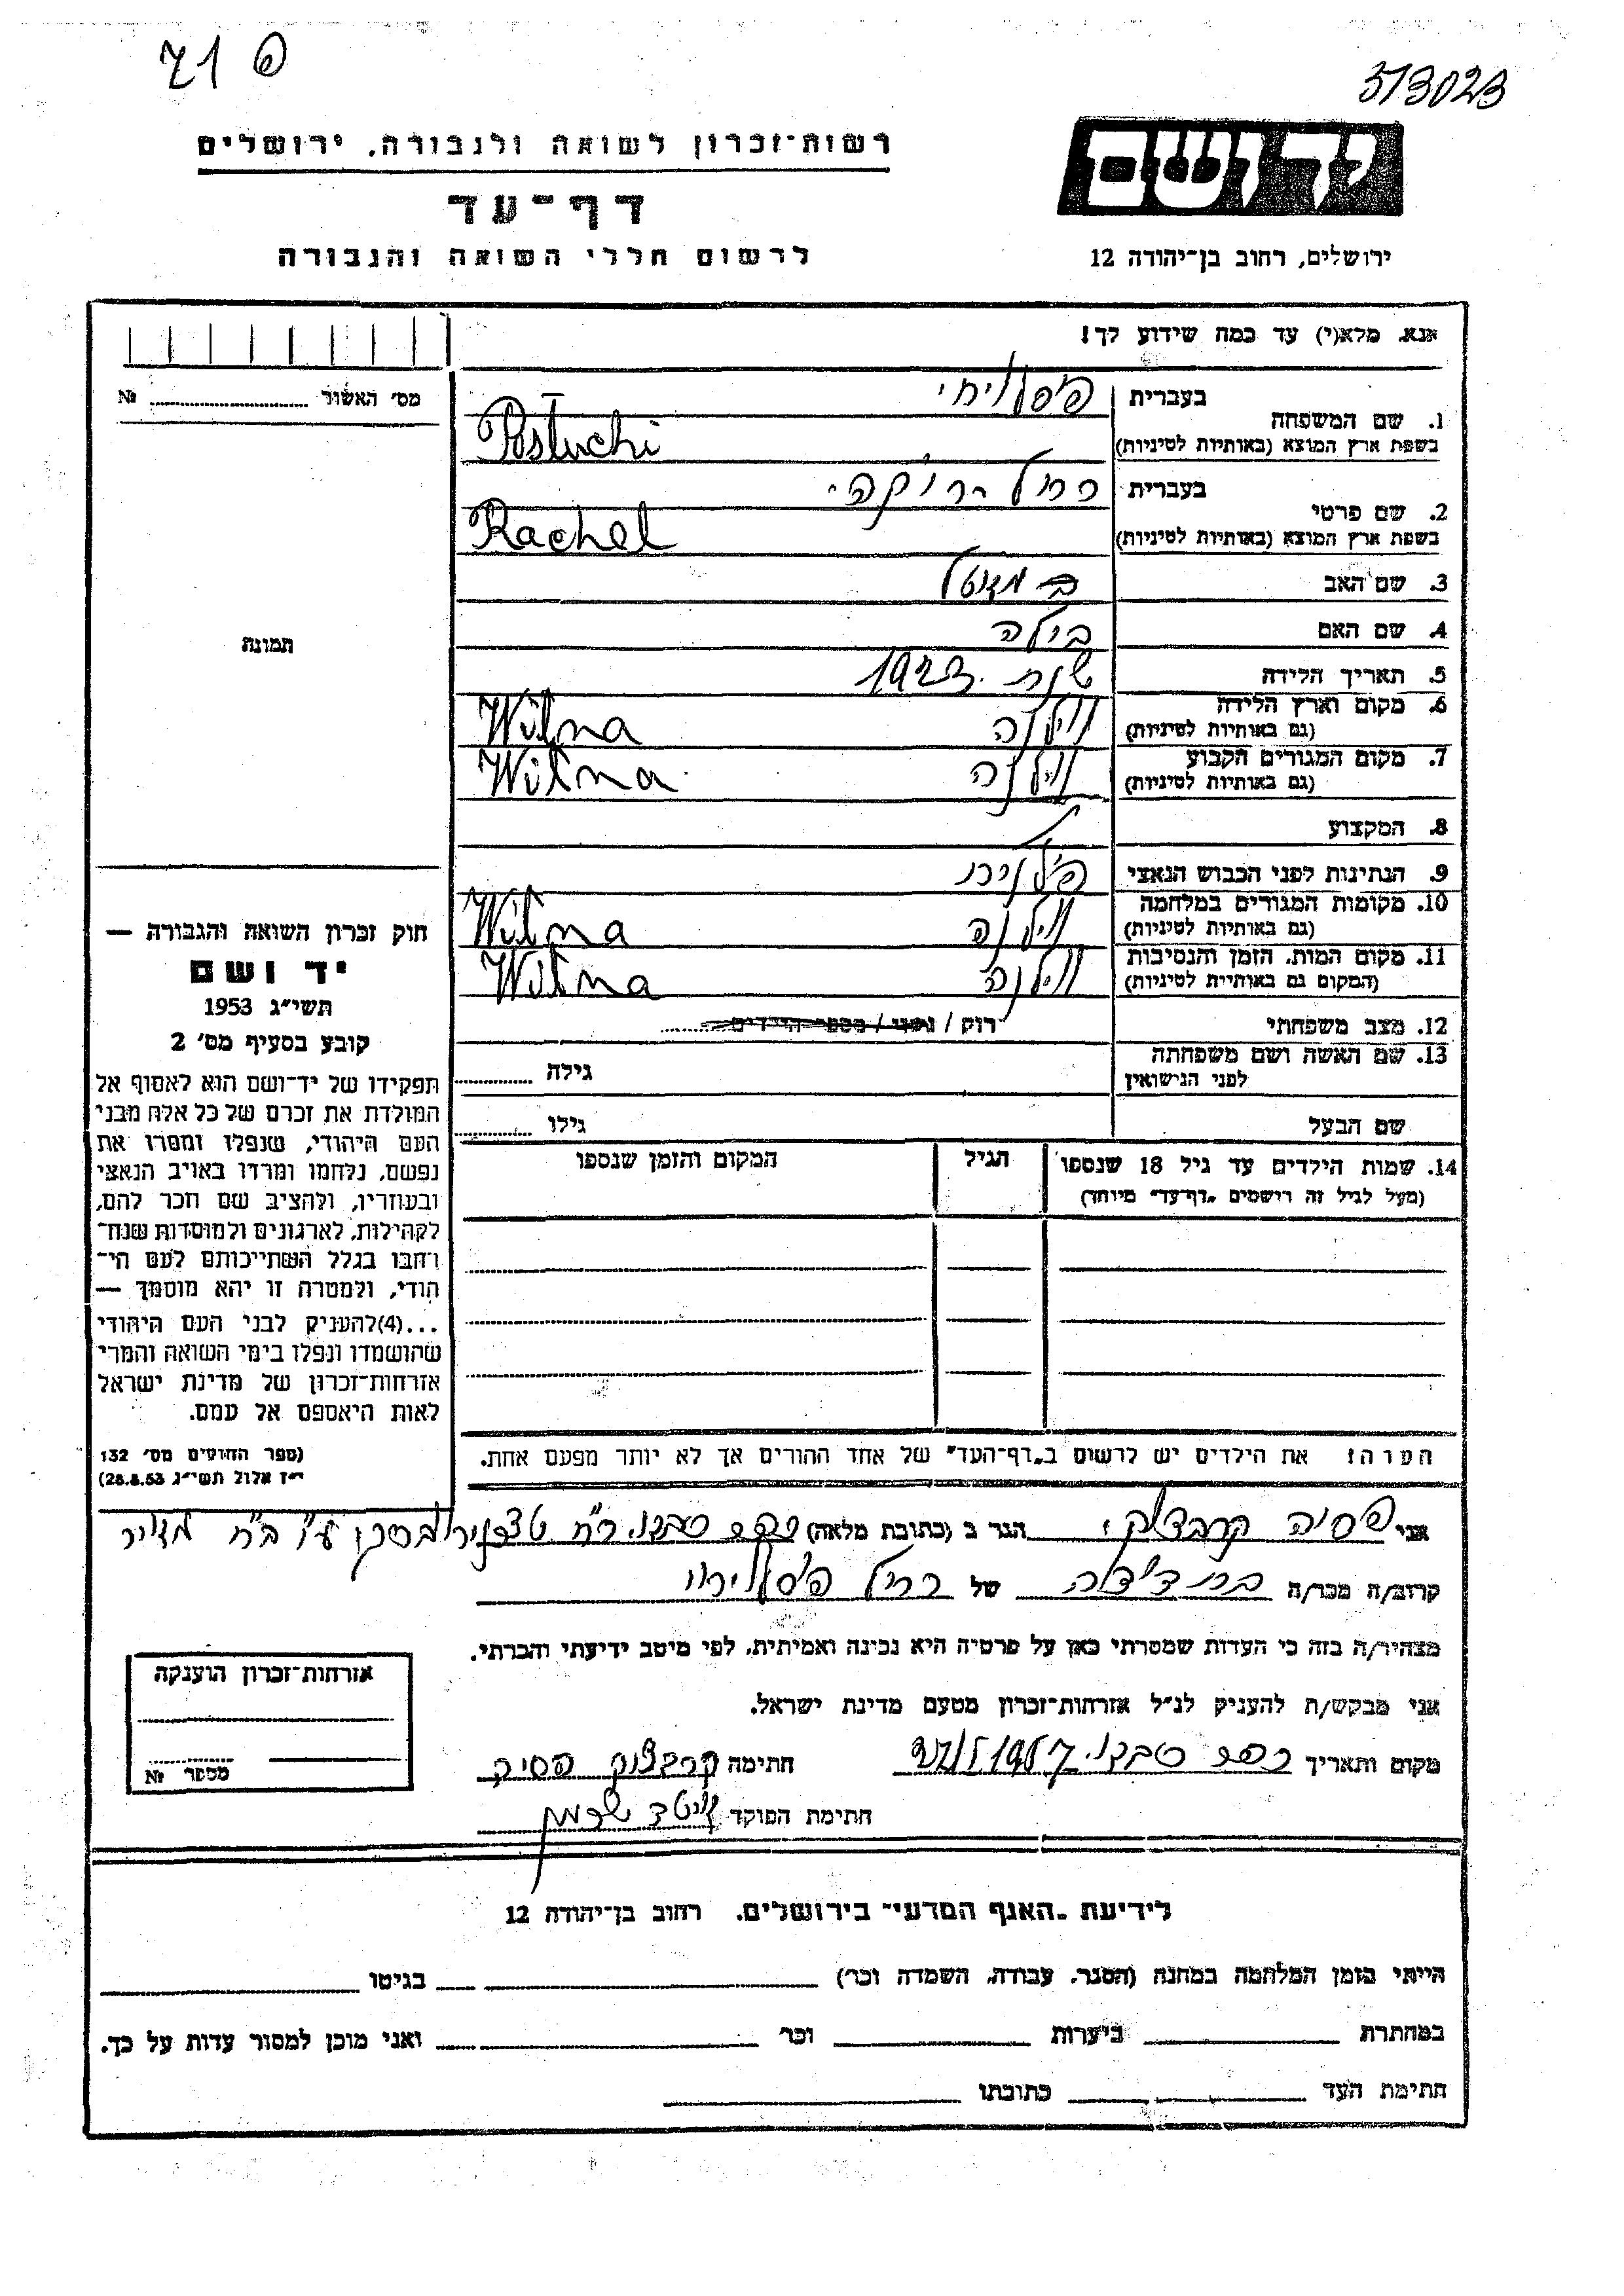 פ 71
573023
יד ושם
רשות־זכרון לשואה ולגבורה, ירושלים
דף־עד
לרשום חללי השואה והגבורה
ירושלים, רחוב בן־יהודה 12
אנא, מלא(י) עד כמה שידוע לך!
מס׳ האשור № 
1. שם המשפחה
בעברית
בשפת ארץ המוצא (באותיות לטיניות)
Postuchi
2. שם פרטי
בעברית רחל
בשפת ארץ המוצא (באותיות לטיניות)
Rachel
3. שם האב
4. שם האם בילה
5. תאריך הלידה שנת 1923
6. מקום וארץ הלידה
(גם באותיות לטיניות) ווילנה Wilna
7. מקום המגורים הקבוע
(גם באותיות לטיניות) ווילנה Wilna
8. המקצוע
9. הנתינות לפני הכבוש הנאצי
10. מקומות המגורים במלחמה
(גם באותיות לטיניות) ווילנה Wilna
11. מקום המות, הזמן והנסיבות
(המקום גם באותיות לטיניות) ווילנה Wilna
12. מצב משפחתי רוק / נשוי / מספר הילדים
13. שם האשה ושם משפחתה
לפני הנישואין גילה
שם הבעל גילו
14. שמות הילדים עד גיל 18 שנספו
(מעל לגיל זה רושמים „דף־עד” מיוחד)
הגיל
המקום והזמן שנספו
הערה: את הילדים יש לרשום ב„דף־העד” של אחד ההורים אך לא יותר מפעם אחת.
תמונה
חוק זכרון השואה והגבורה —
יד ושם
תשי״ג 1953
קובע בסעיף מס׳ 2
תפקידו של יד־ושם הוא לאסוף אל
המולדת את זכרם של כל אלה מבני
העם היהודי, שנפלו ומסרו את
נפשם, נלחמו ומרדו באויב הנאצי
ובעוזריו, ולהציב שם וזכר להם,
לקהילות, לארגונים ולמוסדות שנח־
רבו בגלל השתייכותם לעם הי־
הודי, ולמטרה זו יהא מוסמך —
...(4)להעניק לבני העם היהודי
שהושמדו ונפלו בימי השואה והמרי
אזרחות־זכרון של מדינת ישראל
לאות היאספם אל עמם.
(ספר החוקים מס׳ 132
י״ז אלול תשי״ג 28.8.53)
אני פסיה הגר ב (כתובת מלאה)
קרוב/ה מכר/ה בת דודה של רחל
מצהיר/ה בזה כי העדות שמסרתי כאן על פרטיה היא נכונה ואמיתית, לפי מיטב ידיעתי והכרתי.
אני מבקש/ת להעניק לנ״ל אזרחות־זכרון מטעם מדינת ישראל.
מקום ותאריך חתימה
חתימת הפוקד
אזרחות־זכרון הוענקה
מספר №
לידיעת „האגף המדעי” בירושלים, רחוב בן־יהודה 12
הייתי בזמן המלחמה במחנה (הסגר, עבודה, השמדה וכו׳) בגיטו
במחתרת ביערות וכו׳ ואני מוכן למסור עדות על כך.
חתימת העד כתובתו